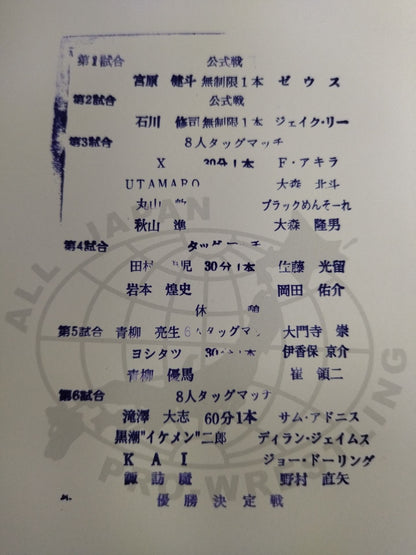 第1試合 公式戦
宮原 健斗 無制限1本 ゼウス
第2試合 公式戦
石川 修司 無制限1本 ジェイク・リー
第3試合 8人タッグマッチ
X 30分1本 F・アキラ
UTAMARO 大森 北斗
丸山 ブラックめんそーれ
秋山 準 大森 隆男
第4試合 タッグマッチ
田村 児 30分1本 佐藤 光留
岩本 煌史 岡田 佑介
休憩
第5試合 青柳 亮生 6人タッグマッ 大門寺 崇
ヨシタツ 30分1本 伊香保 京介
青柳 優馬 崔 領二
第6試合 8人タッグマッチ
滝澤 大志 60分1本 サム・アドニス
黒潮"イケメン"二郎 ディラン・ジェイムス
KAI ジョー・ドーリング
諏訪魔 野村 直矢
優勝決定戦
ALL JAPAN
PRO-WRESTLING